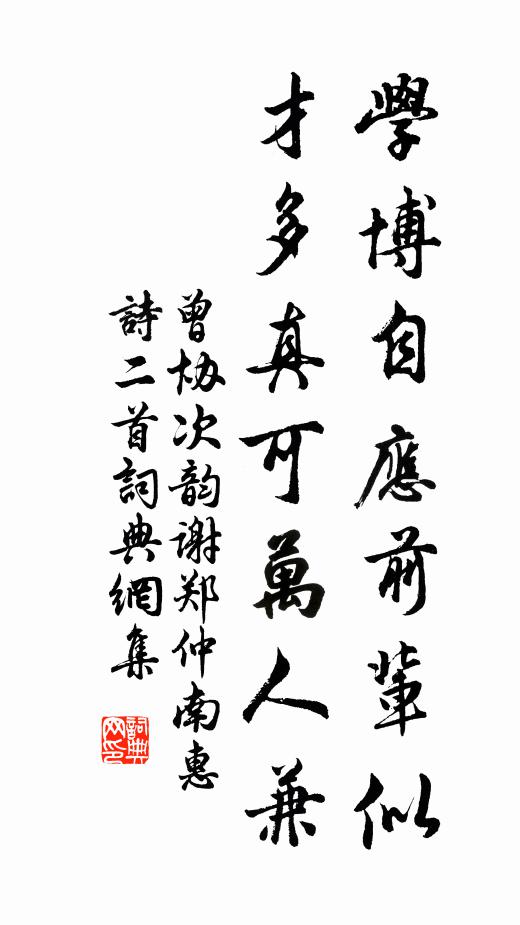 學博自應前輩似
才多真可萬人兼
曾协次韵谢郑仲南惠
詩二首詞典網集
詞典網印